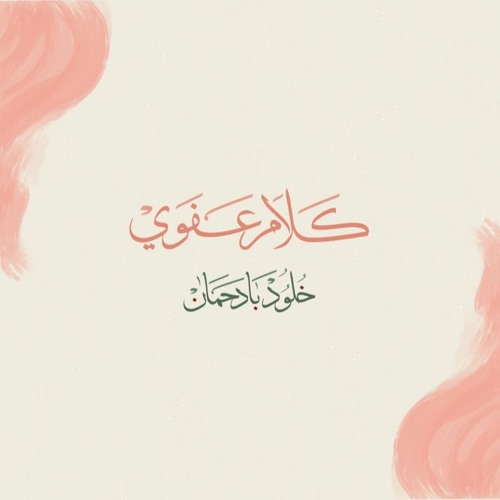 كَلَام عَفَوي
خُلُود بَادَحمَان